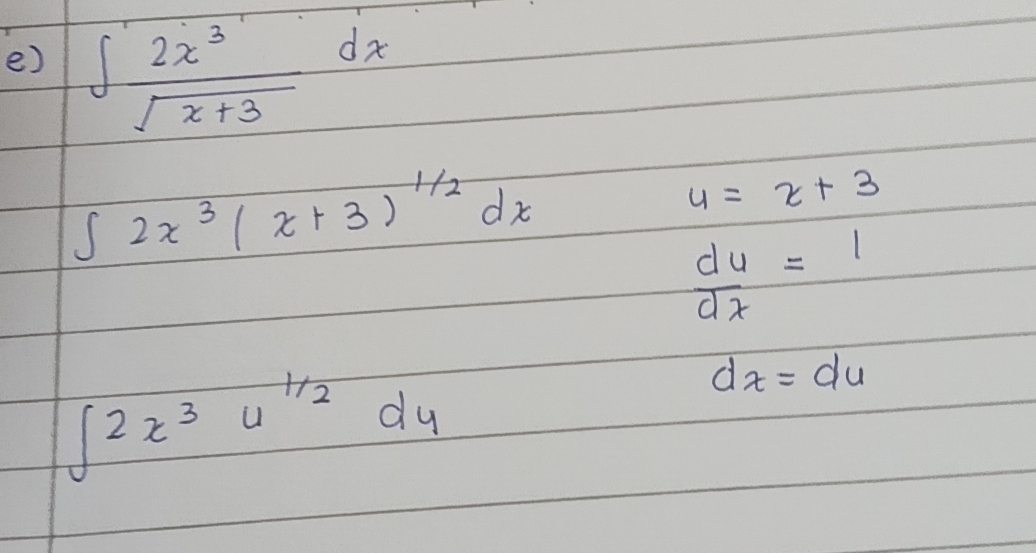 e) ∫ 2x³/√(x+3) dx
∫ 2x³(x+3)^1/2 dx u = x+3
du/dx = 1
dx = du
∫2x³ u^1/2 du